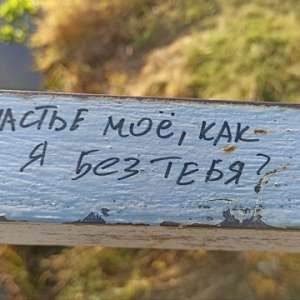 частье моё, как
я без тебя?